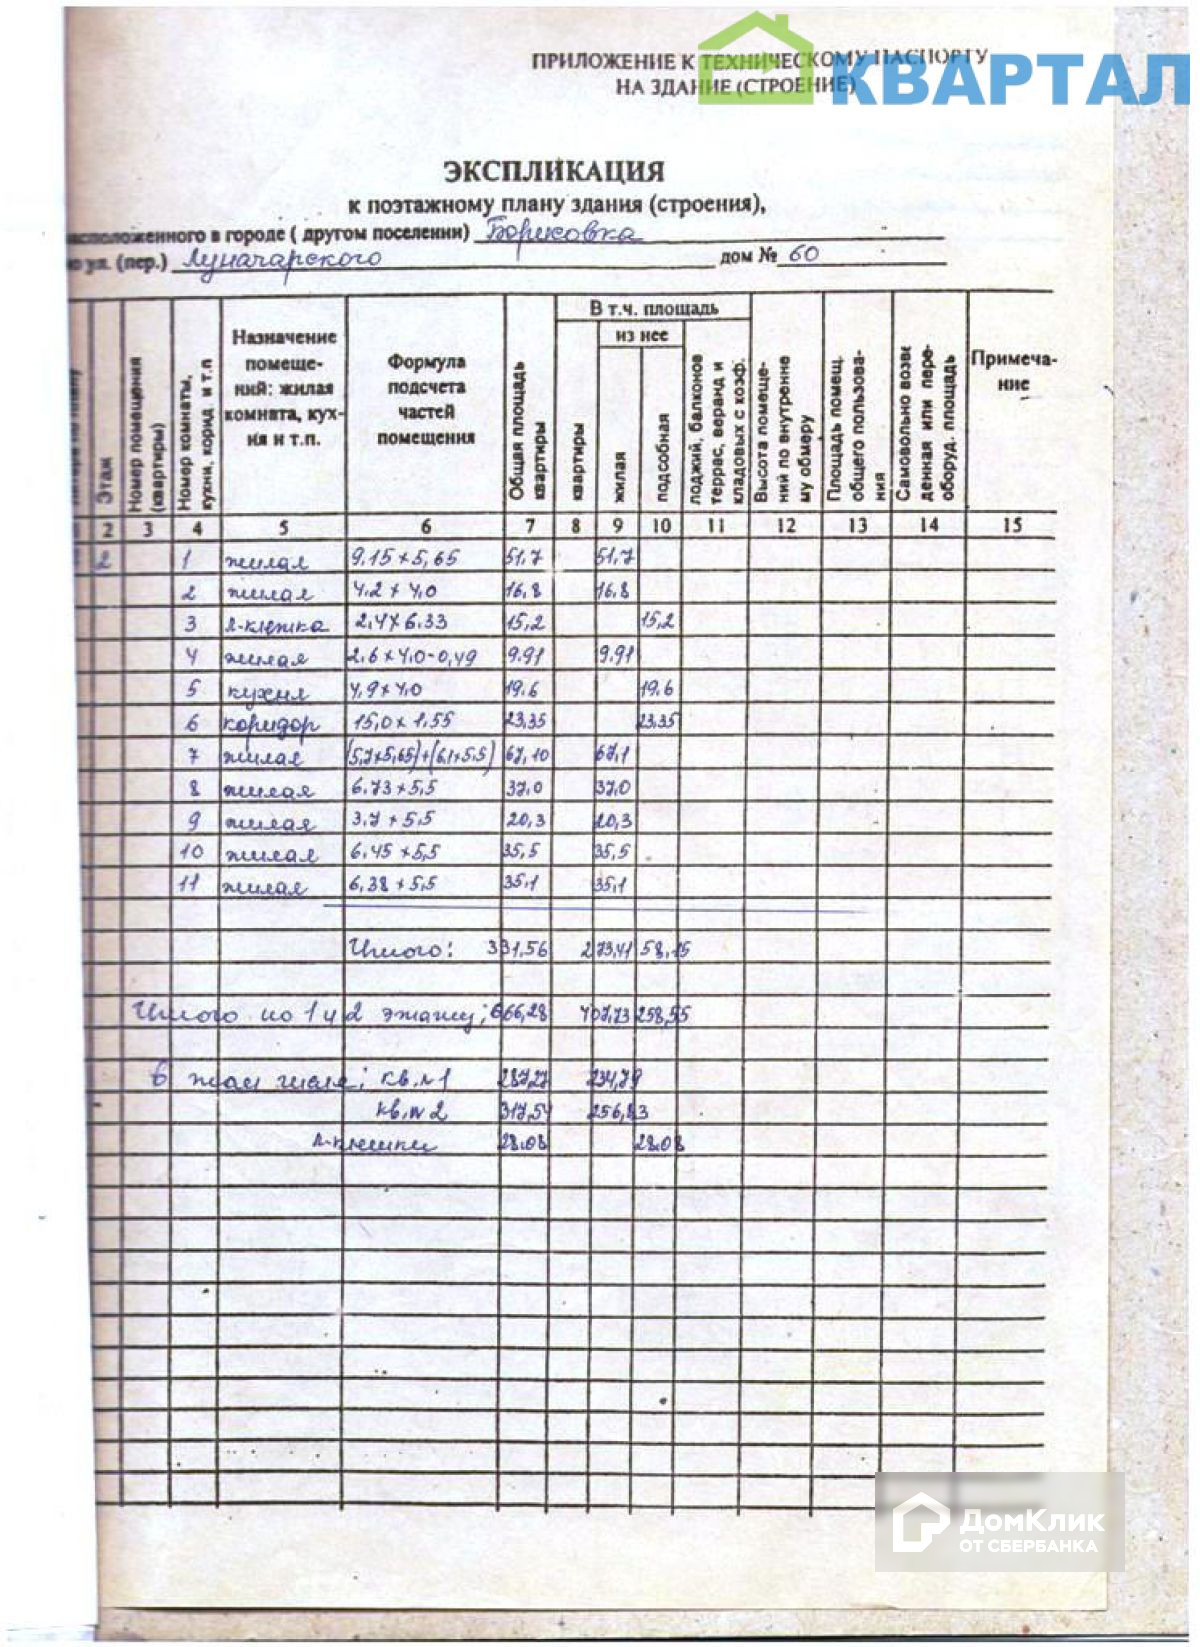 ПРИЛОЖЕНИЕ К ТЕХНИЧЕСКОМУ ПАСПОРТУ
НА ЗДАНИЕ (СТРОЕНИЕ)
КВАРТАЛ
ЭКСПЛИКАЦИЯ
к поэтажному плану здания (строения),
асположенного в городе ( другом поселении) Борисовка
о ул. (пер.) Луначарского дом № 60
Этаж
Номер помещения (квартиры)
Номер комнаты, кухни, корид. и т.п
Назначение помеще-ний: жилая комната, кух-ня и т.п.
Формула подсчета частей помещения
Общая площадь квартиры
В т.ч. площадь
из нее
квартиры
жилая
подсобная
лоджий, балконов террас, веранд и кладовых с коэф.
Высота помеще-ний по внутренне му обмеру
Площадь помещ. общего пользова-ния
Самовольно возве денная или пере-оборуд. площадь
Примеча-ние
2 3 4 5 6 7 8 9 10 11 12 13 14 15
2 1 жилая 9.15×5,65 51,7 51,7
2 жилая 4.2×4,0 16,8 16,8
3 л-клетка 2.4×6.33 15,2 15,2
4 жилая 2.6×4,0-0,49 9.91 9.91
5 кухня 4,9×4,0 19.6 19.6
6 коридор 15,0×1.55 23,35 23,35
7 жилая (5,7×5,65)+(6,1×5,5) 67,10 67,1
8 жилая 6.73×5,5 37,0 37,0
9 жилая 3.7×5.5 20,3 20,3
10 жилая 6.45×5,5 35,5 35,5
11 жилая 6,38×5,5 35,1 35,1
Итого: 331,56 273,41 58,15
Итого по 1 и 2 этажу; 666,28 407,73 258,55
В том числе; кв.№1 287,27 234,79
кв.№2 317,54 256,83
л-клетки 28.08 28.08
ДомКлик
ОТ СБЕРБАНКА